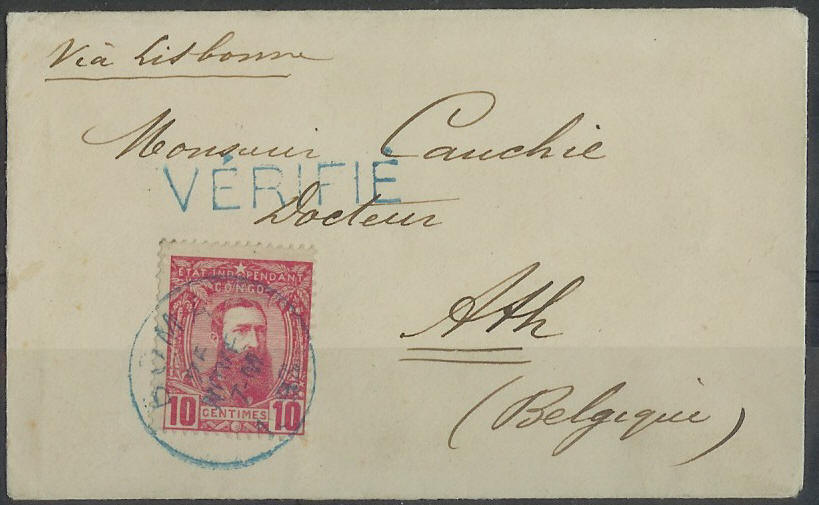 Viâ Lisbonne
Monsieur Cauchie
VÉRIFIÉ
Docteur
ETAT INDEPENDANT
CONGO
Ath
10 CENTIMES 10
(Belgique)